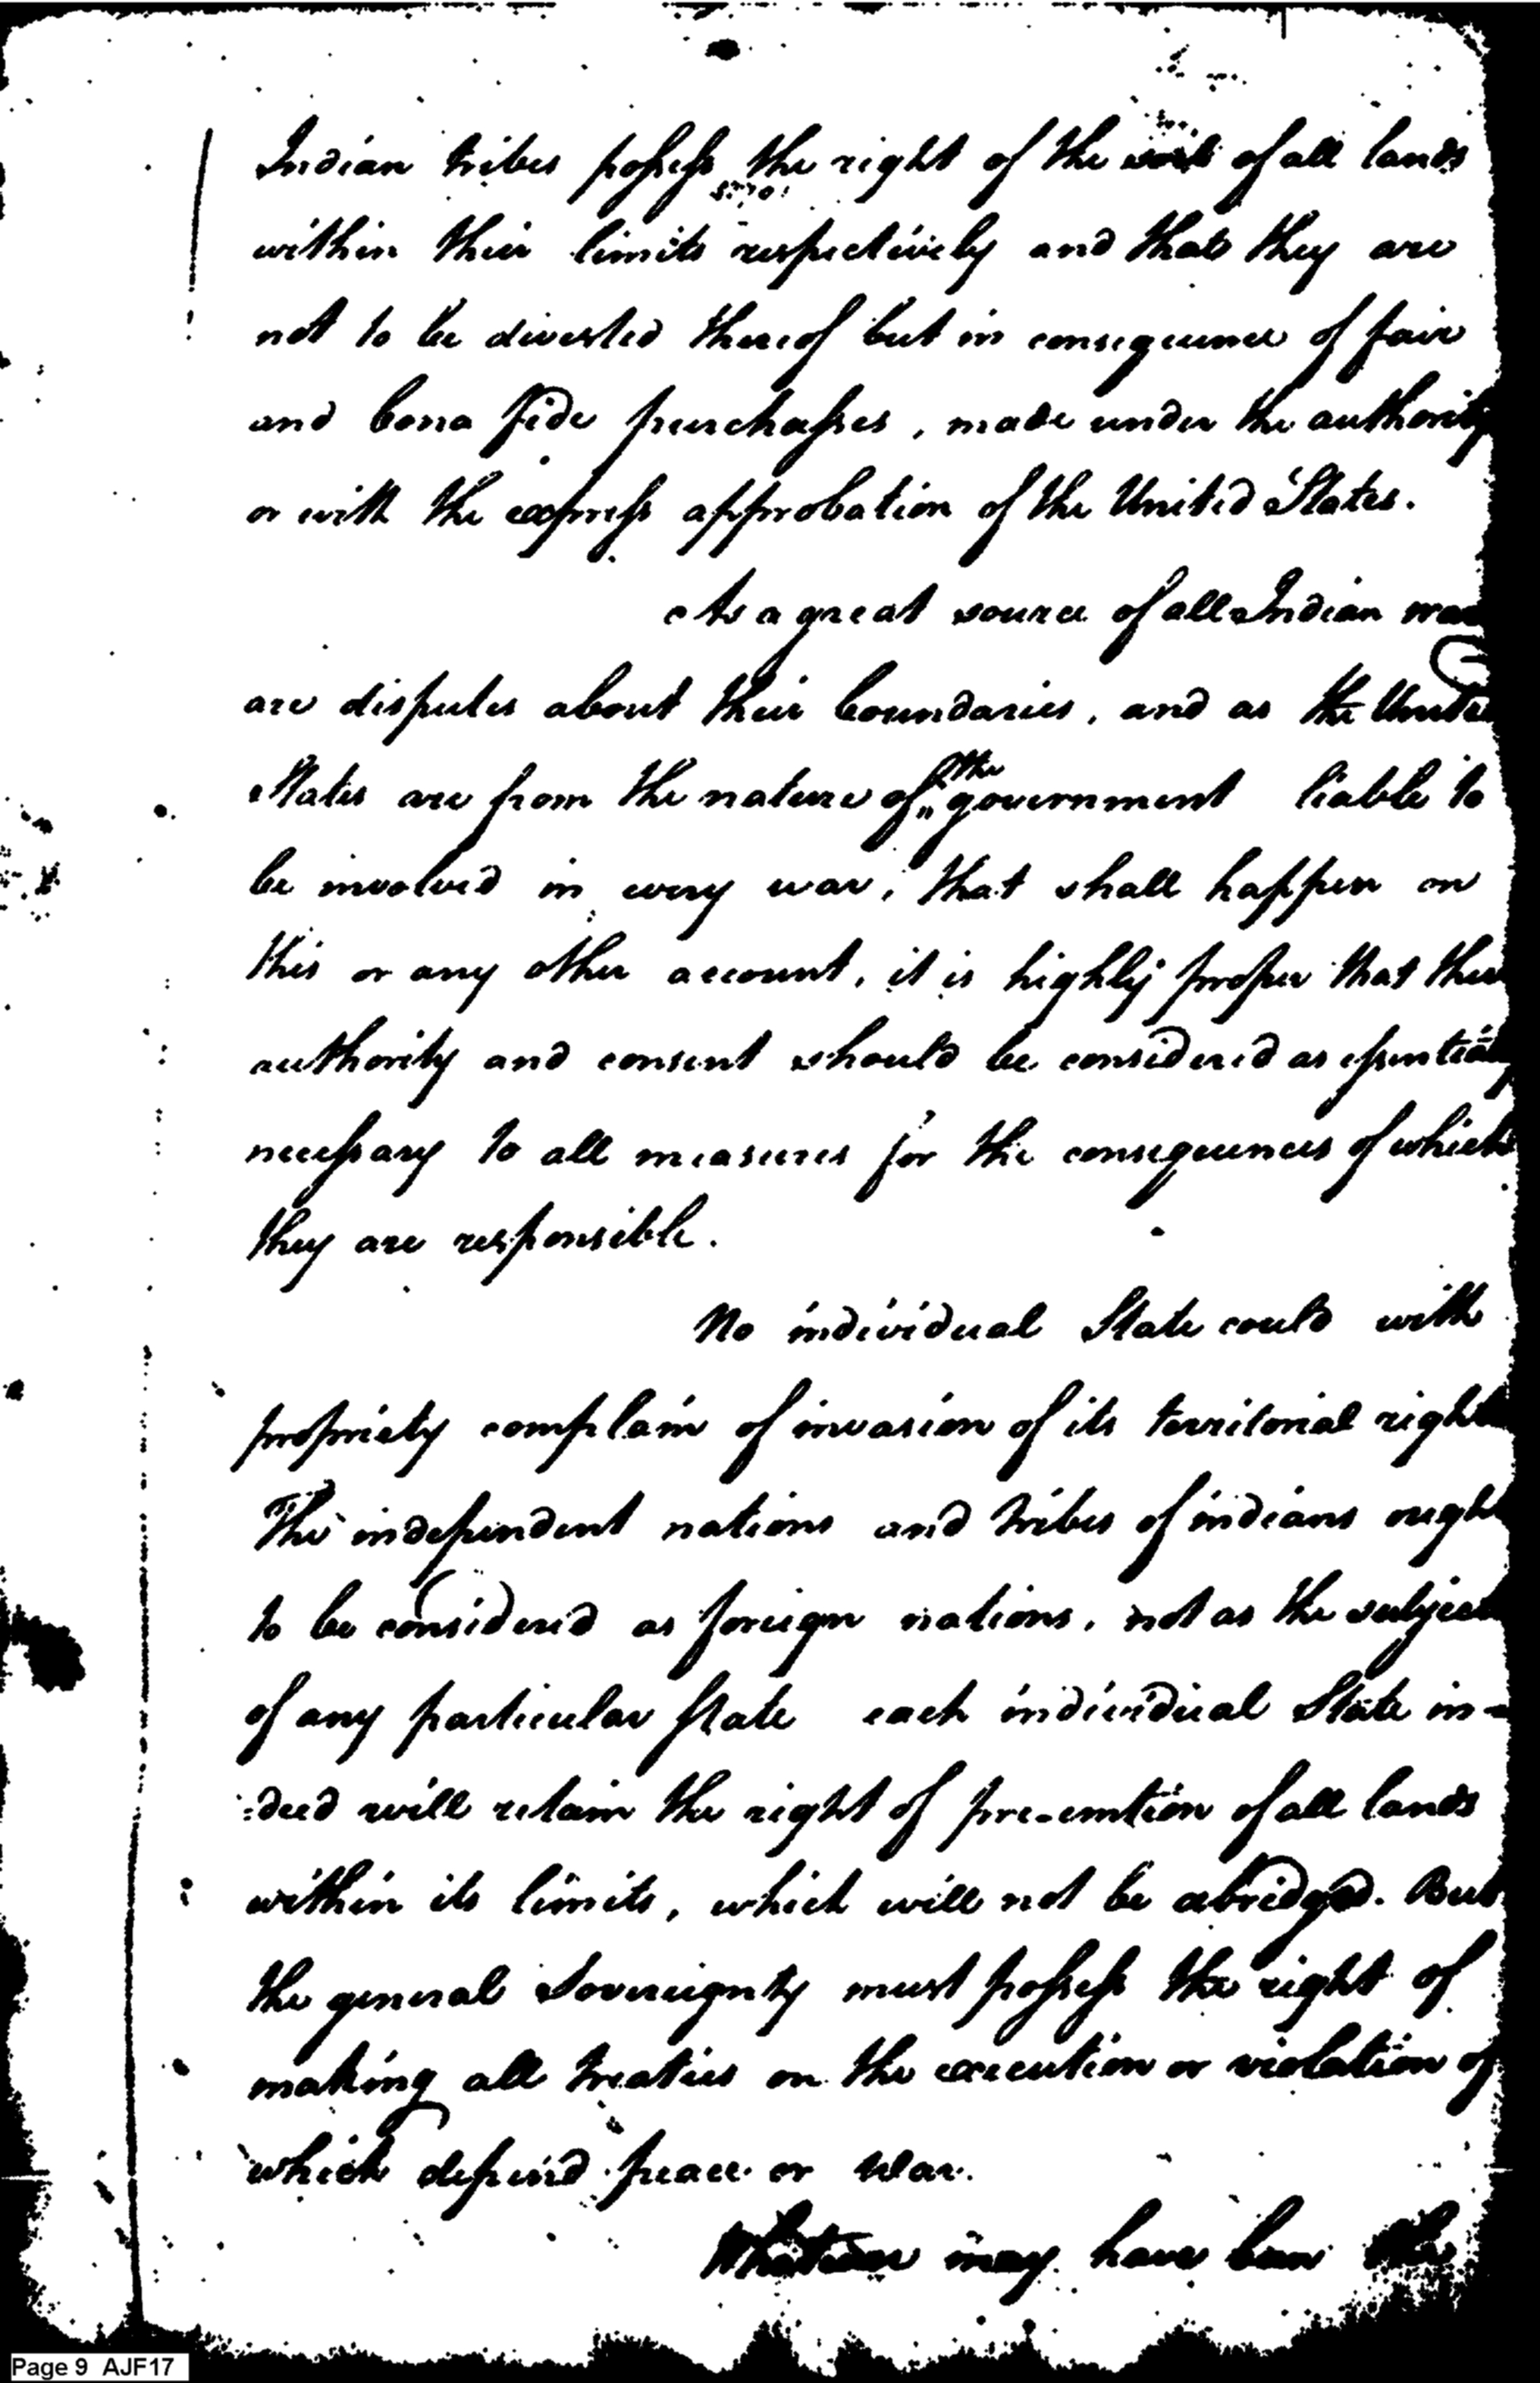 Indian tribes possess the right of the soil of all lands
within their limits respectively and that they are
not to be divested thereof but in consequence of fair
and bona fide purchasses, made under the authority
or with the express approbation of the United States.
As a great source of all Indian
are disputes about their boundaries, and as the United
States are from the nature of the government liable to
be involved in every war, that shall happen on
this or any other account, it is highly proper that their
authority and consent should be considered as essentially
necessary to all measures for the consequences of which
they are responsible.
No individual State could with
propriety complain of invasion of its territorial rights
The independent nations and tribes of indians ought
to be considered as foreign nations, not as the subjects
of any particular state each individual State in-
:deed will retain the right of pre-emtion of all lands
within its limits, which will not be abridged. But
the general Sovereignty must possess the right of
making all treaties on the execution or violation of
which depend peace or War.
Whatever may have been the
Page 9 AJF17